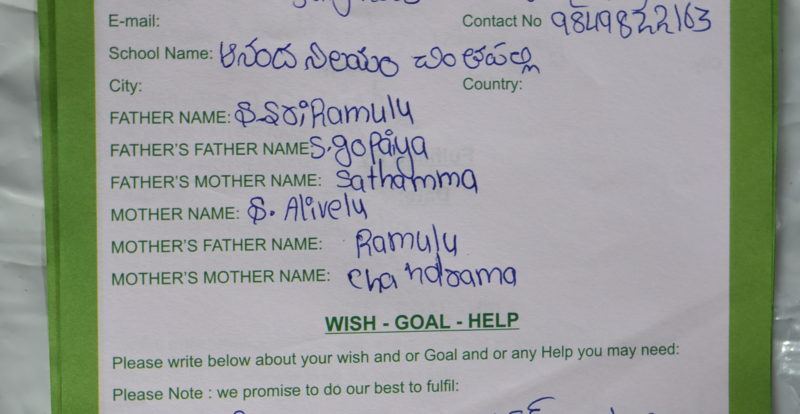 E-mail:
Contact No 9849822163
School Name: ఆనంద నిలయం చింతపల్లి
City:
Country:
FATHER NAME: S. SriRamulu
FATHER'S FATHER NAME S.gopaiya
FATHER'S MOTHER NAME: Sathamma
MOTHER NAME: S. Alivelu
MOTHER'S FATHER NAME: Ramulu
MOTHER'S MOTHER NAME: Chandrama
WISH - GOAL - HELP
Please write below about your wish and or Goal and or any Help you may need:
Please Note : we promise to do our best to fulfil: